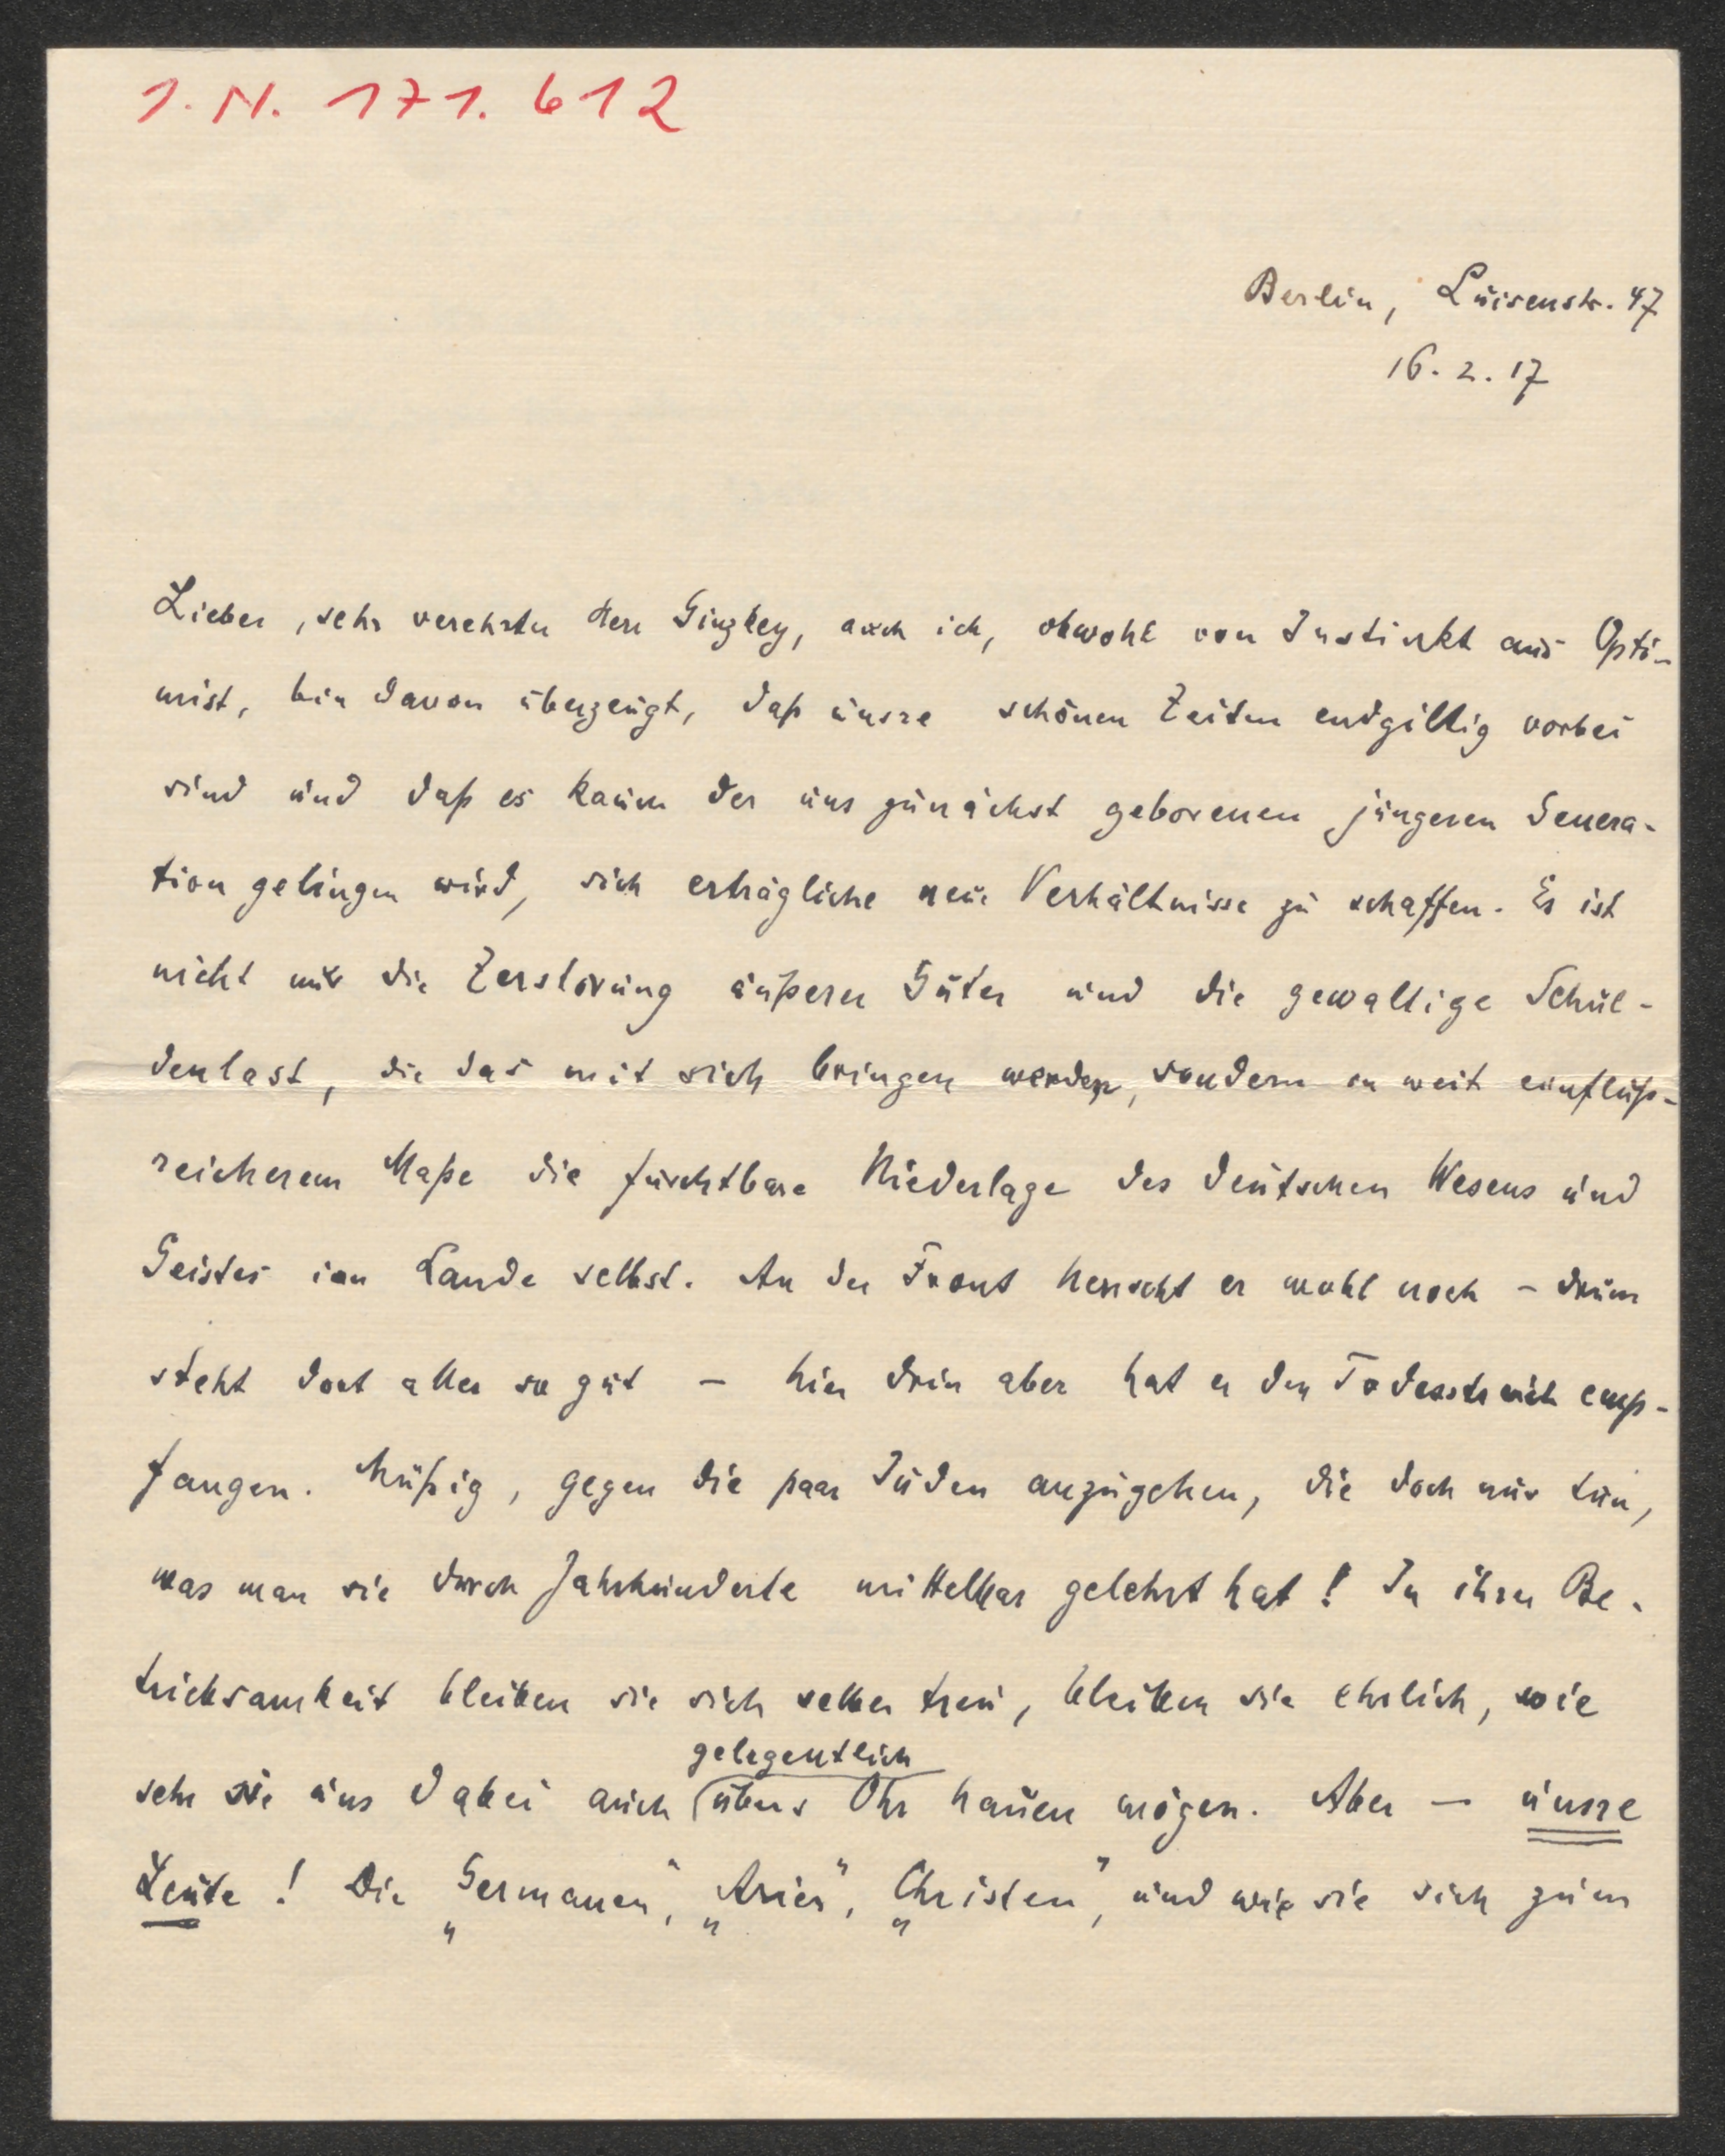 I. N. 171. 612
Berlin, Luisenstr. 47
16. 2. 17
Lieber, sehr verehrter Herr Ginzkey, auch ich, obwohl von Instinkt aus Opti-
mist, bin davon überzeugt, daß unsre schönen Zeiten endgiltig vorbei
sind und daß es kaum der uns zunächst geborenen jüngeren Genera-
tion gelingen wird, sich erträgliche neue Verhältnisse zu schaffen. Es ist
nicht nur die Zerstörung äußerer Güter und die gewaltige Schul-
denlast, die das mit sich bringen werden, sondern in weit einfluß-
reicherem Maße die furchtbare Niederlage des deutschen Wesens und
Geistes im Lande selbst. An der Front herrscht er wohl noch – drum
steht dort alles so gut – hier drin aber hat er den Todesstreich emp-
fangen. Müßig, gegen die paar Juden anzugehen, die doch nur tun,
was man sie durch Jahrhunderte mittelbar gelehrt hat! In ihrer Be-
triebsamkeit bleiben sie sich selber treu, bleiben sie ehrlich, wie
gelegentlich
sehr sie uns dabei auch übers Ohr hauen mögen. Aber – unsre
Leute! Die „Germanen", „Arier", „Christen", und wie sie sich zum